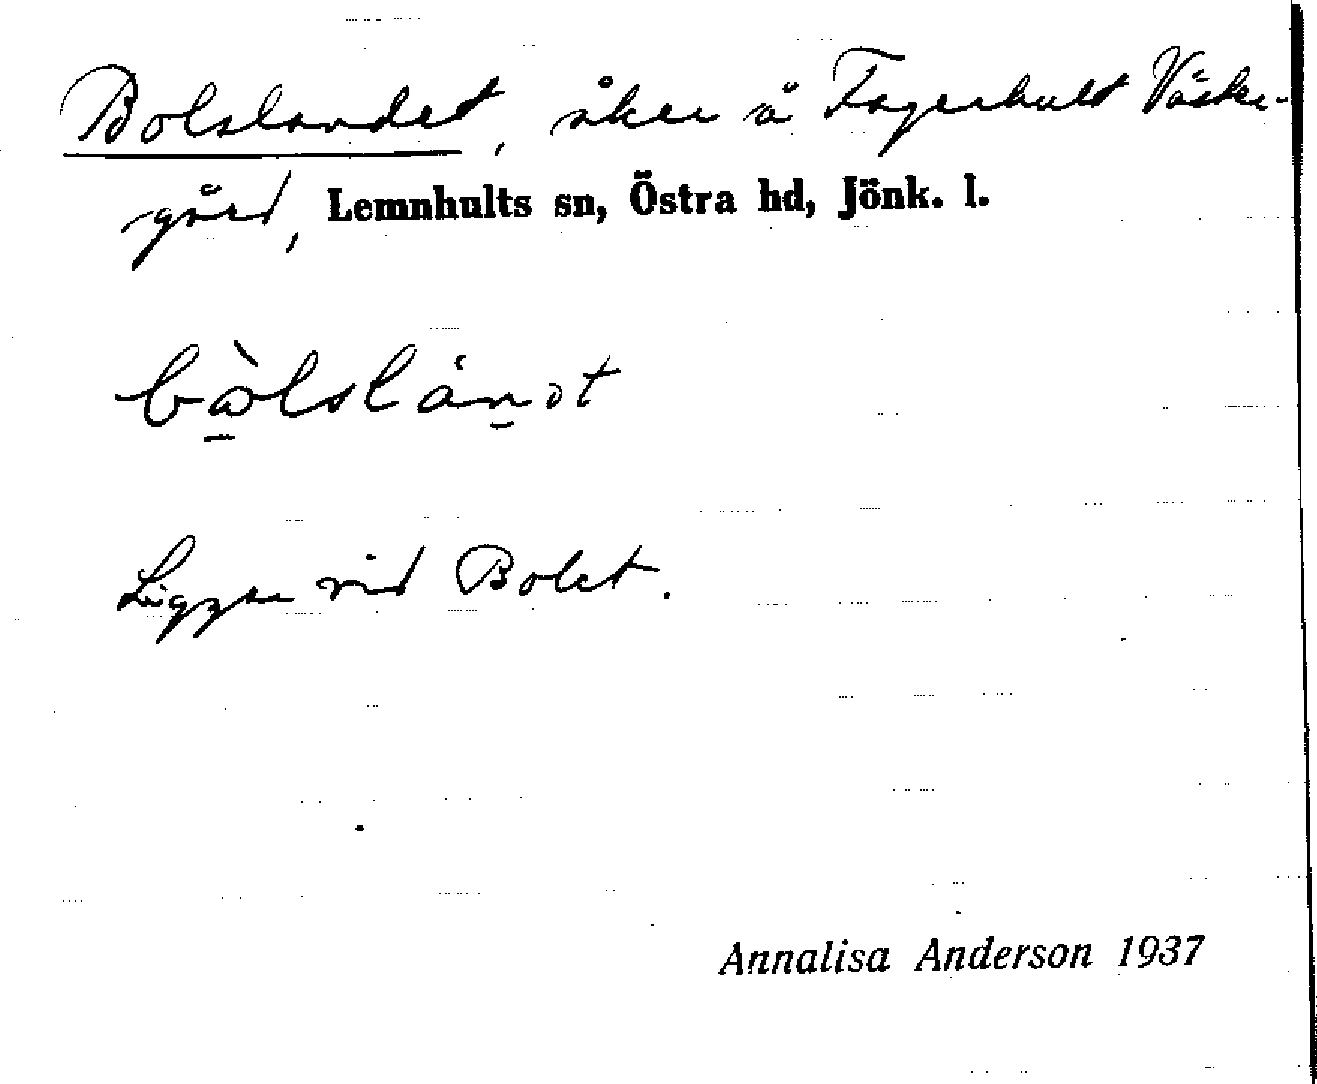 Bolslandet, åker å Fagerhult Väster-
gård, Lemnhults sn, Östra hd, Jönk. l.
Ligger vid Bolet.
Annalisa Anderson 1937